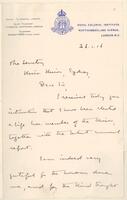 ROYAL COLONIAL INSTITUTE
NORTHUMBERLAND AVENUE,
LONDON, W.C.
The Secretary
Dear Sir
I received today your
intimation that I have been elected
a life member of the
together with the latest annual
report.
I am indeed very
grateful for the honour done
me, and for the kind thought